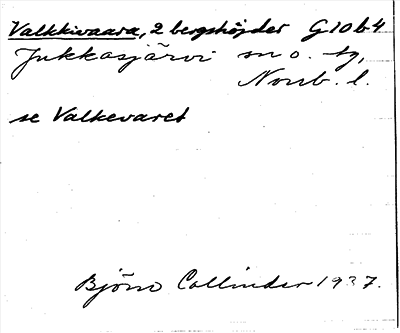 Valkkivaara, 2 bergshöjder G10b4
Jukkasjärvi sn o. tg,
Norrb. l.
se Valkevaret
Björn Collinder 1937.